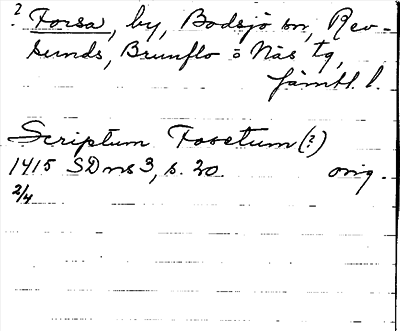 ? Forsa, by, Bodsjö sn, Rev-
sunds, Brunflo o Näs tg,
Jämtl. l.
Scriptum Foosetum (?)
1415 SDns 3, s. 20. orig.
2/4